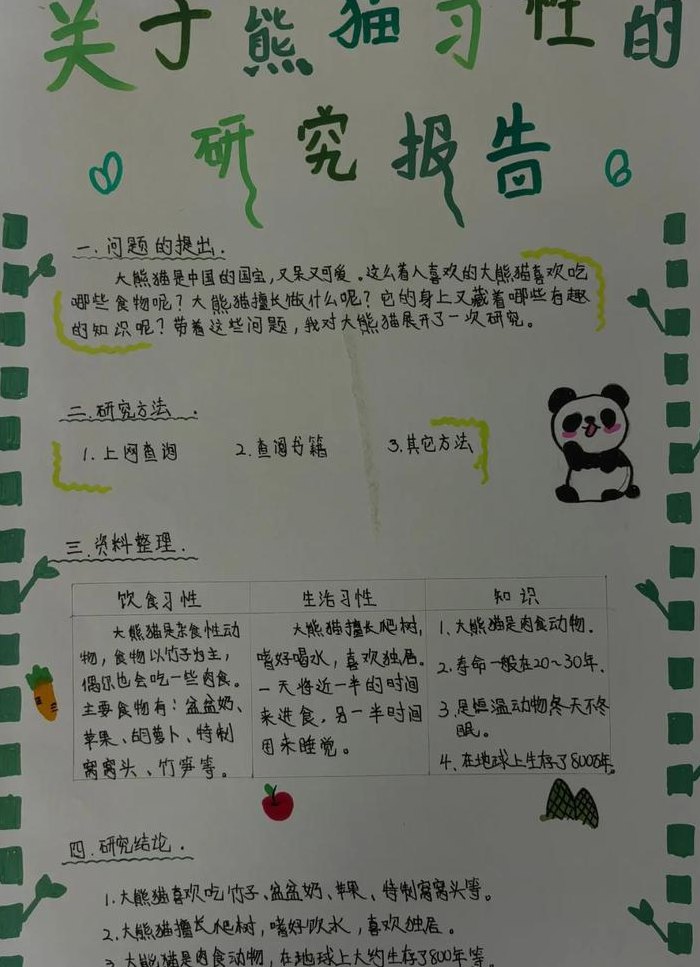 关于熊猫习性的
研究报告
一.问题的提出.
大熊猫是中国的国宝,又呆又可爱。这么着人喜欢的大熊猫喜欢吃
哪些食物呢?大熊猫擅长做什么呢?它的身上又藏着哪些有趣
的知识呢?带着这些问题,我对大熊猫展开了一次研究。
二.研究方法.
1.上网查询 2.查阅书籍 3.其它方法
三.资料整理.
饮食习性
大熊猫是杂食性动
物,食物以竹子为主,
偶尔也会吃一些肉食。
主要食物有:盆盆奶、
苹果、胡萝卜、特制
窝窝头、竹笋等。
生活习性
大熊猫擅长爬树,
嗜好喝水,喜欢独居。
一天将近一半的时间
来进食,另一半时间
用来睡觉。
知识
1.大熊猫是肉食动物.
2.寿命一般在20~30年.
3.是恒温动物冬天不冬
眠.
4.在地球上生存了800万年。
四.研究结论.
1.大熊猫喜欢吃竹子、盆盆奶、苹果、特制窝窝头等。
2.大熊猫擅长爬树,嗜好饮水,喜欢独居。
3.大熊猫是肉食动物,在地球上大约生存了800年等。